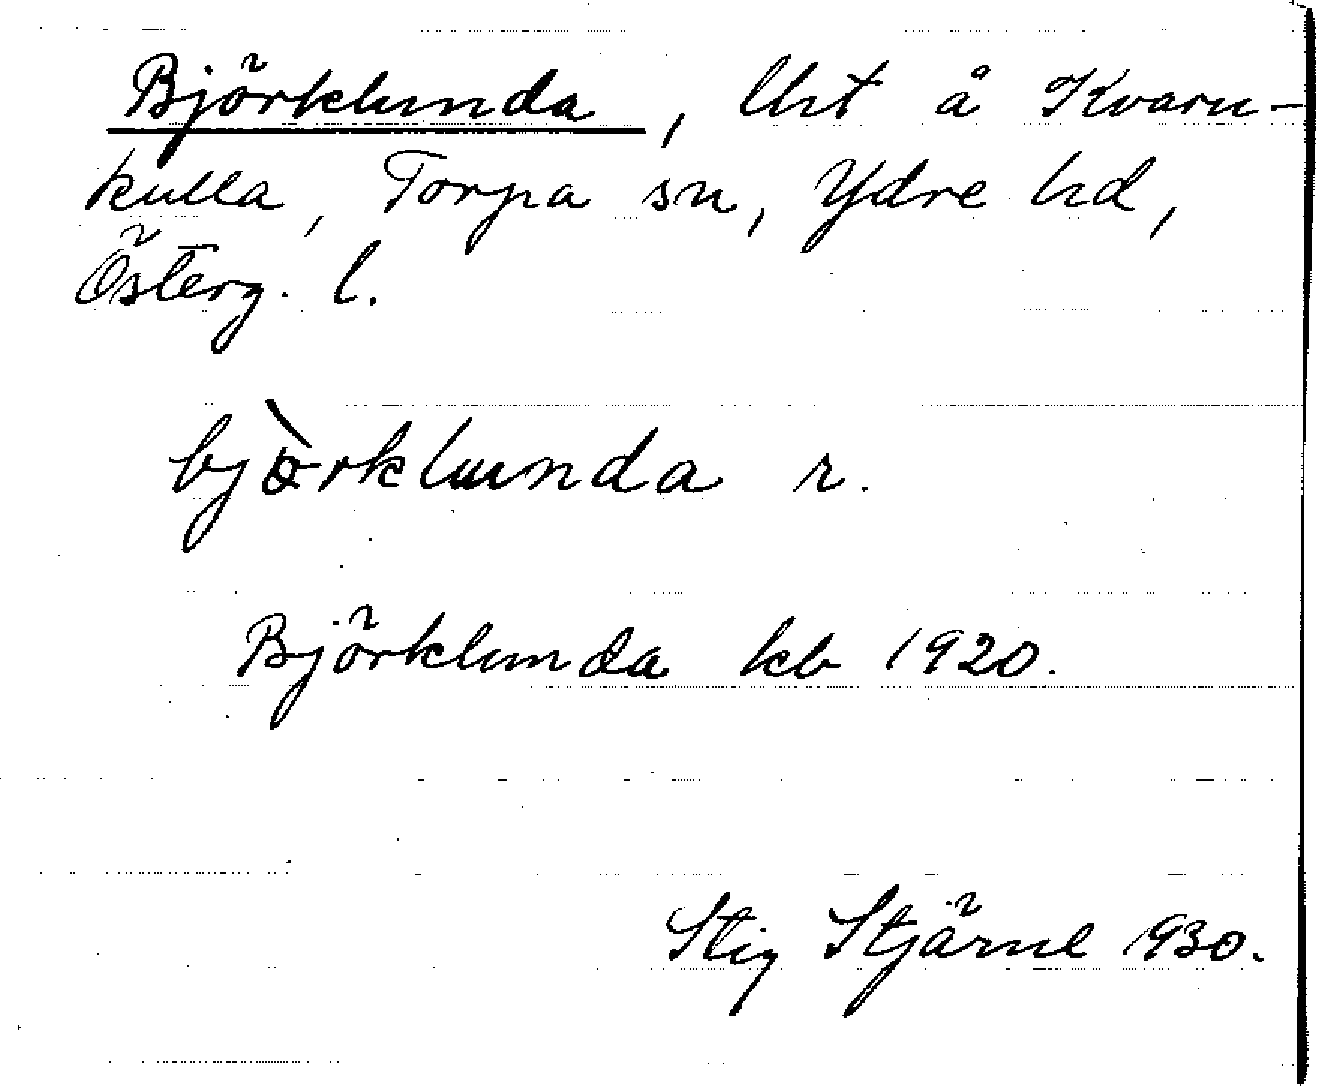 Björklunda, lht å Kvarn-
kulla, Torpa sn, Ydre hd,
Österg. l.
bjòrklunda r.
Björklunda kb 1920.
Stig Stjärne 1930.